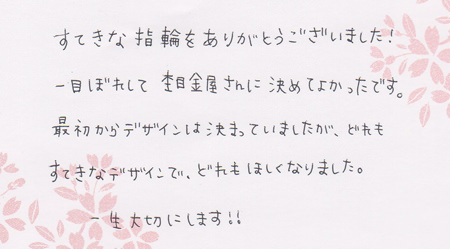 すてきな指輪をありがとうございました!
一目ぼれして杢目金屋さんに決めてよかったです。
最初からデザインは決まっていましたが、どれも
すてきなデザインで、どれもほしくなりました。
一生大切にします!!